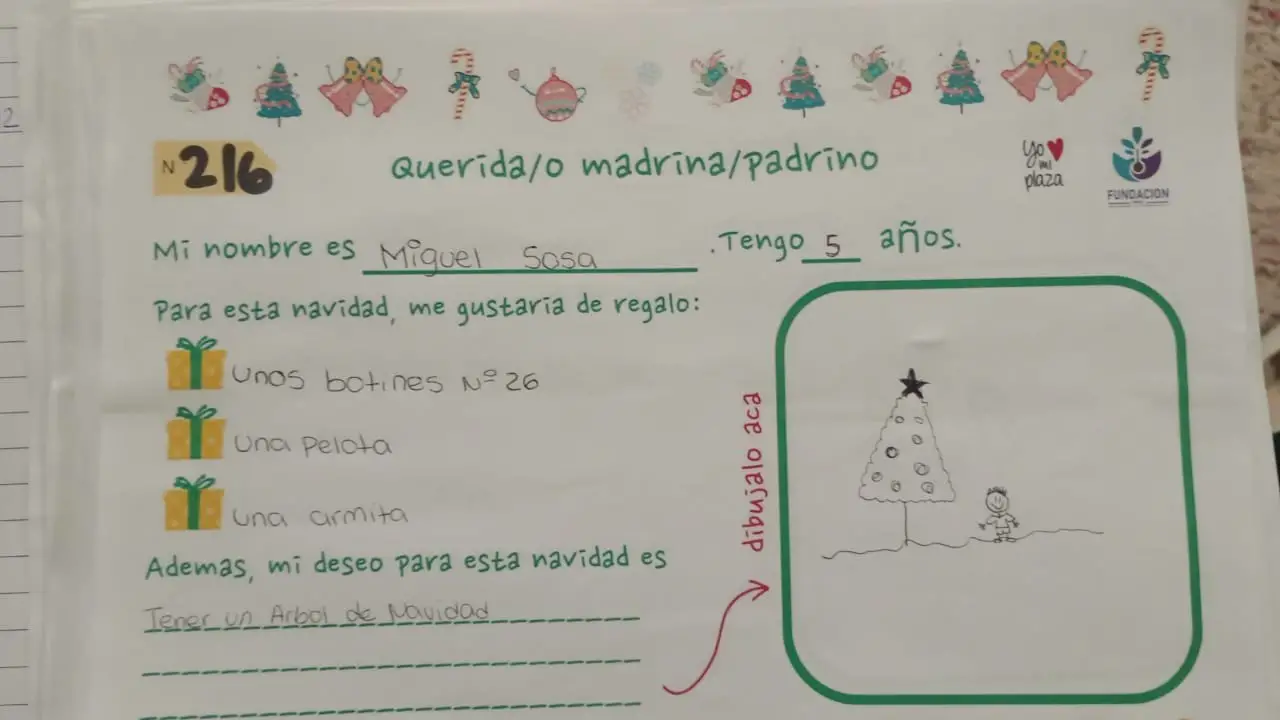 2
N 216
Querida/o madrina/padrino
Yo mi plaza
FUNDACION
Mi nombre es Miguel Sosa. Tengo 5 años.
Para esta navidad, me gustaria de regalo:
unos botines Nº 26
una pelota
una armita
Ademas, mi deseo para esta navidad es
Tener un Arbol de Navidad
dibujalo aca